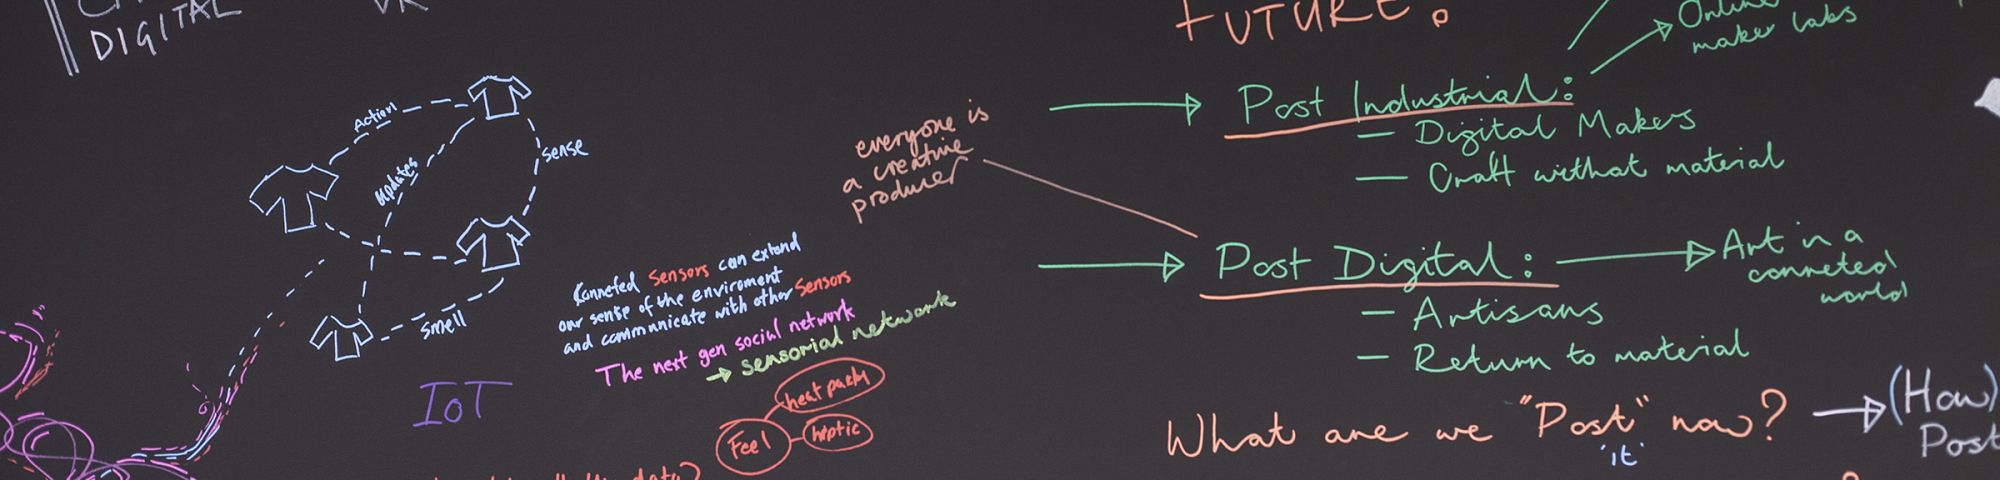 DIGITAL
VR
Action
updates
sense
smell
Conneted sensors can extend
our sense of the enviroment
and communicate with other sensors
The next gen social network
→ sensorial network
IoT
Feel
heat pads
haptic
data?
everyone is
a creative
producer
FUTURE.
Post Industrial:
— Digital Makers
— Craft without material
Online
maker labs
Post Digital:
— Artisans
— Return to material
Art in a
conneted
world
What are we "Post" now?
'it'
(How)
Post